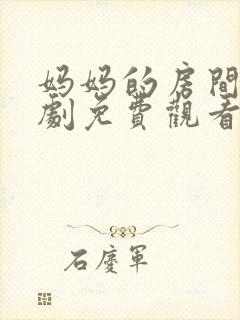 妈妈的房間
劇免費觀看
石慶軍